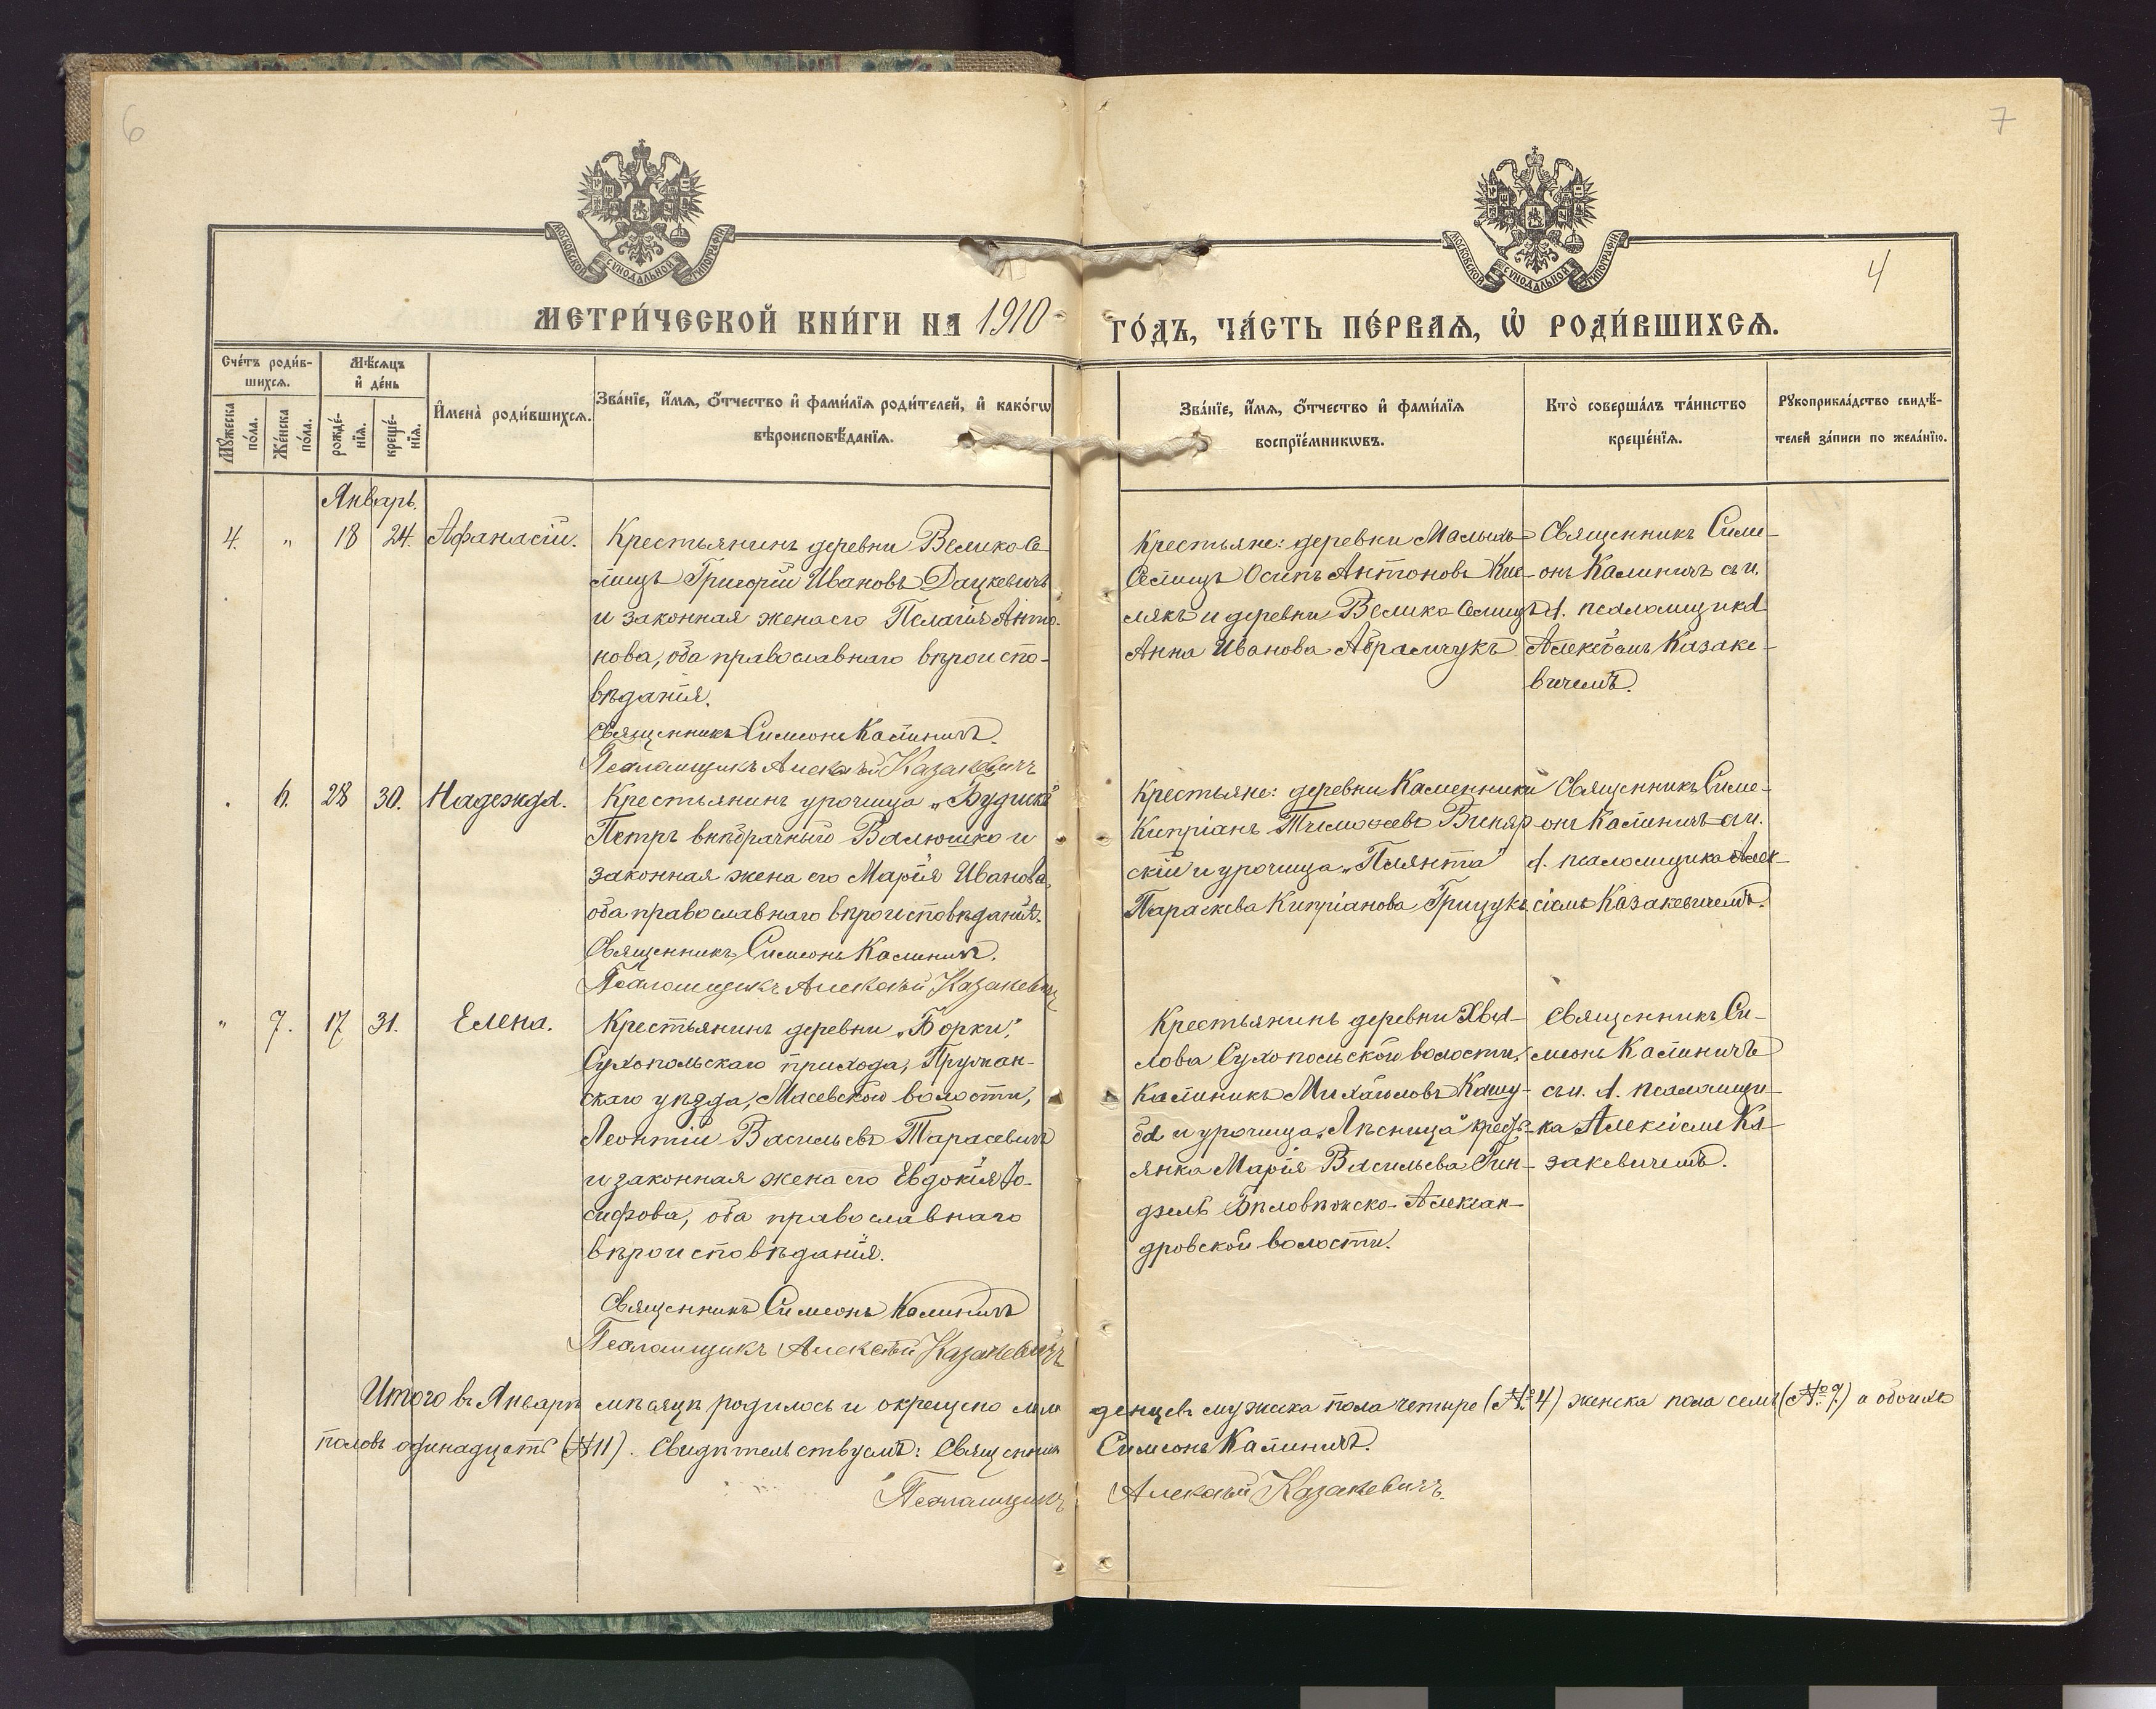 6
7
МОСКОВСКОЙ СУНОДАЛЬНОЙ ТИПОГРАФІИ
МОСКОВСКОЙ СУНОДАЛЬНОЙ ТИПОГРАФІИ
4
МЕТРИ́ЧЕСКОЙ КНИ́ГИ НА 1910
ГО́ДЪ, ЧА́СТЬ ПЕ́РВАѦ, Ѡ҆ РОДИ́ВШИХСѦ.
Сче́тъ роди́в-
шихсѧ.
Мꙋ́жеска по́ла.
Же́нска по́ла.
Мѣ́сѧцъ
и҆ де́нь
рожде́-нїѧ.
креще́-нїѧ.
И҆мена̀ роди́вшихсѧ.
Зва́нїе, и҆́мѧ, ѻ҆́тчество и҆ фами́лїѧ роди́телей, и҆ како́гѡ
вѣроисповѣ́данїѧ.
Зва́нїе, и҆́мѧ, ѻ҆́тчество и҆ фами́лїѧ
воспрїе́мникѡвъ.
Кто̀ соверша́лъ та́инство
креще́нїѧ.
Рꙋкоприкла́дство свидѣ́-
телей за́писи по жела́нїю.
Январь.
4. " 18 24. Афанасій.
Крестьянинъ деревни Велико Се-
лищъ Григорій Ивановъ Дацкевичъ
и законная жена его Пелагія Анто-
нова, оба православнаго вѣроиспо-
вѣданія.
Священникъ Симеонъ Калиничъ.
Псаломщикъ Алексѣй Казакевичъ
Крестьяне: деревни Малыхъ
Селищъ Осипъ Антоновъ
и деревни Велико-Селищъ
Анна Иванова Абрамчукъ
Священникъ Симе-
онъ Калиничъ съ и.
д. псаломщика
Алексѣемъ Казаке-
вичемъ.
6. 28 30. Надежда.
Крестьянинъ урочища „Будиска"
Петръ внѣбрачный Валюшко и
законная жена его Марія Иванова,
оба православнаго вѣроисповѣданія.
Священникъ Симеонъ Калиничъ.
Псаломщикъ Алексѣй Казакевичъ
Крестьяне: деревни Каменники
Кипріанъ Тимоѳеевъ Виняр-
скій и урочища „Плянта"
Параскева Кипріанова Грицукъ
Священникъ Симе-
онъ Калиничъ съ и.
д. псаломщика Алек-
сіемъ Казакевичемъ.
" 7. 17 31. Елена.
Крестьянинъ деревни „Борки",
Сухопольскаго прихода, Пружан-
скаго уѣзда, Масевской волости,
Леонтій Васильевъ Тарасевичъ
и законная жена его Евдокія Іо-
сифова, оба православнаго
вѣроисповѣданія.
Священникъ Симеонъ Калиничъ
Псаломщикъ Алексѣй Казакевичъ
Крестьянинъ деревни Хва-
лова Сухопольской волости,
Калиникъ Михайловъ Кашу-
ба и урочища „Лѣсница" кресть-
янка Марія Васильева Гин-
дзель Бѣловѣжско-Алексан-
дровской волости.
Священникъ Си-
меонъ Калиничъ
съ и. д. псаломщи-
ка Алексіемъ Ка-
закевичемъ.
Итого въ Январѣ мѣсяцѣ родилось и окрещено мла
денцевъ мужска пола четыре (№ 4) женска пола семь (№ 7) а обоихъ
половъ одинадцать (№ 11). Свидѣтельствуемъ: Священникъ
Симеонъ Калиничъ.
Псаломщикъ
Алексѣй Казакевичъ.